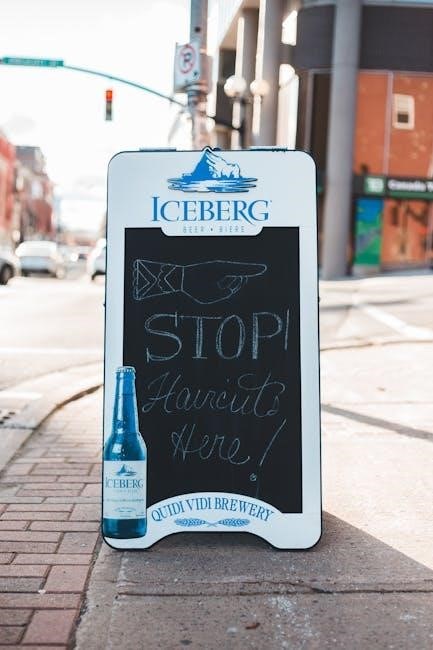 ICEBERG
BEER • BIÈRE
STOP!
Haircuts
Here!
ICEBERG
QUIDI VIDI BREWERY
TD
Canada T